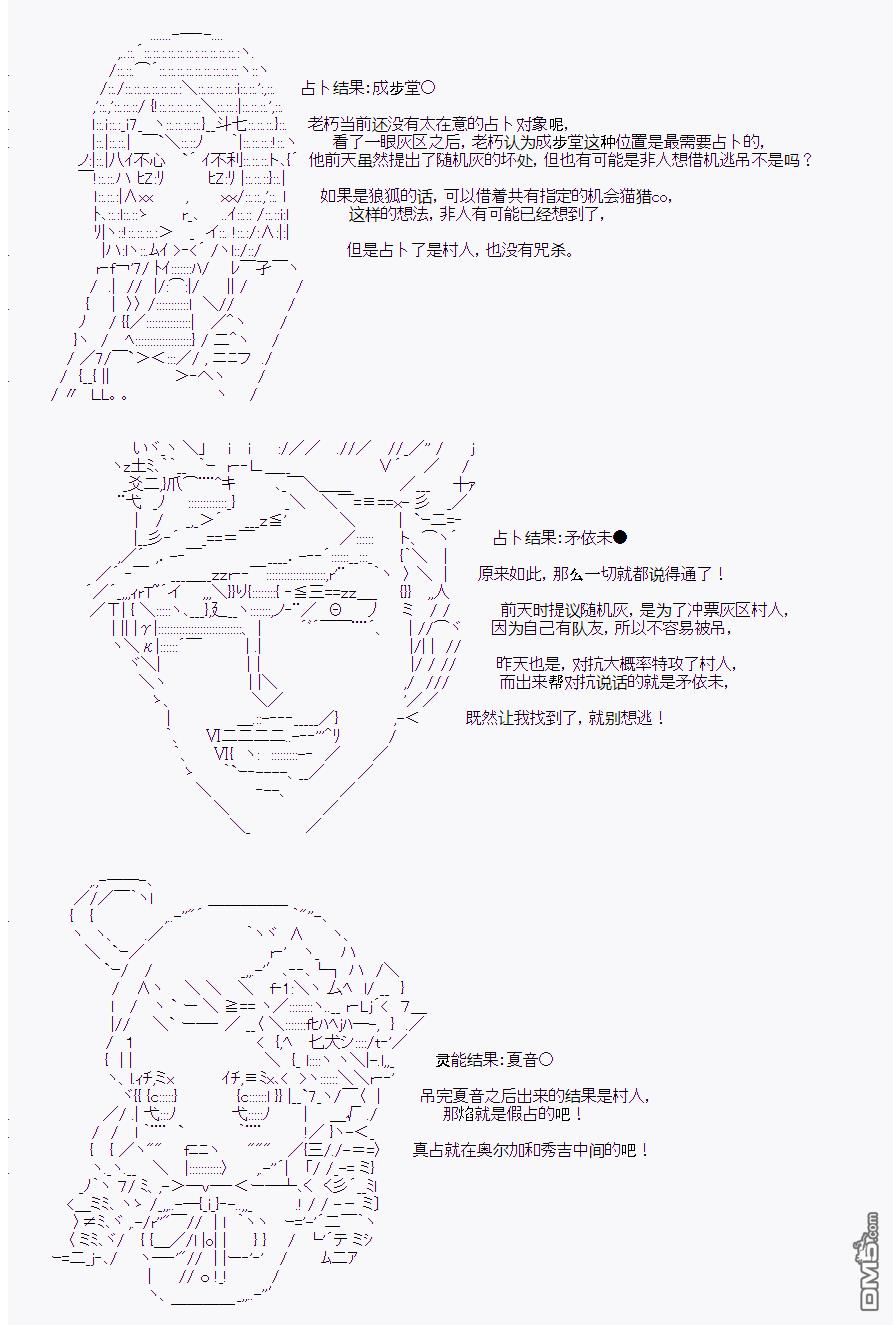 占卜结果:成步堂○
老朽当前还没有太在意的占卜对象呢，
看了一眼灰区之后，老朽认为成步堂这种位置是最需要占卜的，
他前天虽然提出了随机灰的坏处，但也有可能是非人想借机逃吊不是吗？
如果是狼狐的话，可以借着共有指定的机会猫猎co，
这样的想法，非人有可能已经想到了，
但是占卜了是村人，也没有咒杀。
占卜结果:矛依未●
原来如此，那么一切就都说得通了！
前天时提议随机灰，是为了冲票灰区村人，
因为自己有队友，所以不容易被吊，
昨天也是，对抗大概率特攻了村人，
而出来帮对抗说话的就是矛依未，
既然让我找到了，就别想逃！
灵能结果:夏音○
吊完夏音之后出来的结果是村人，
那焰就是假占的吧！
真占就在奥尔加和秀吉中间的吧！
DM5.com